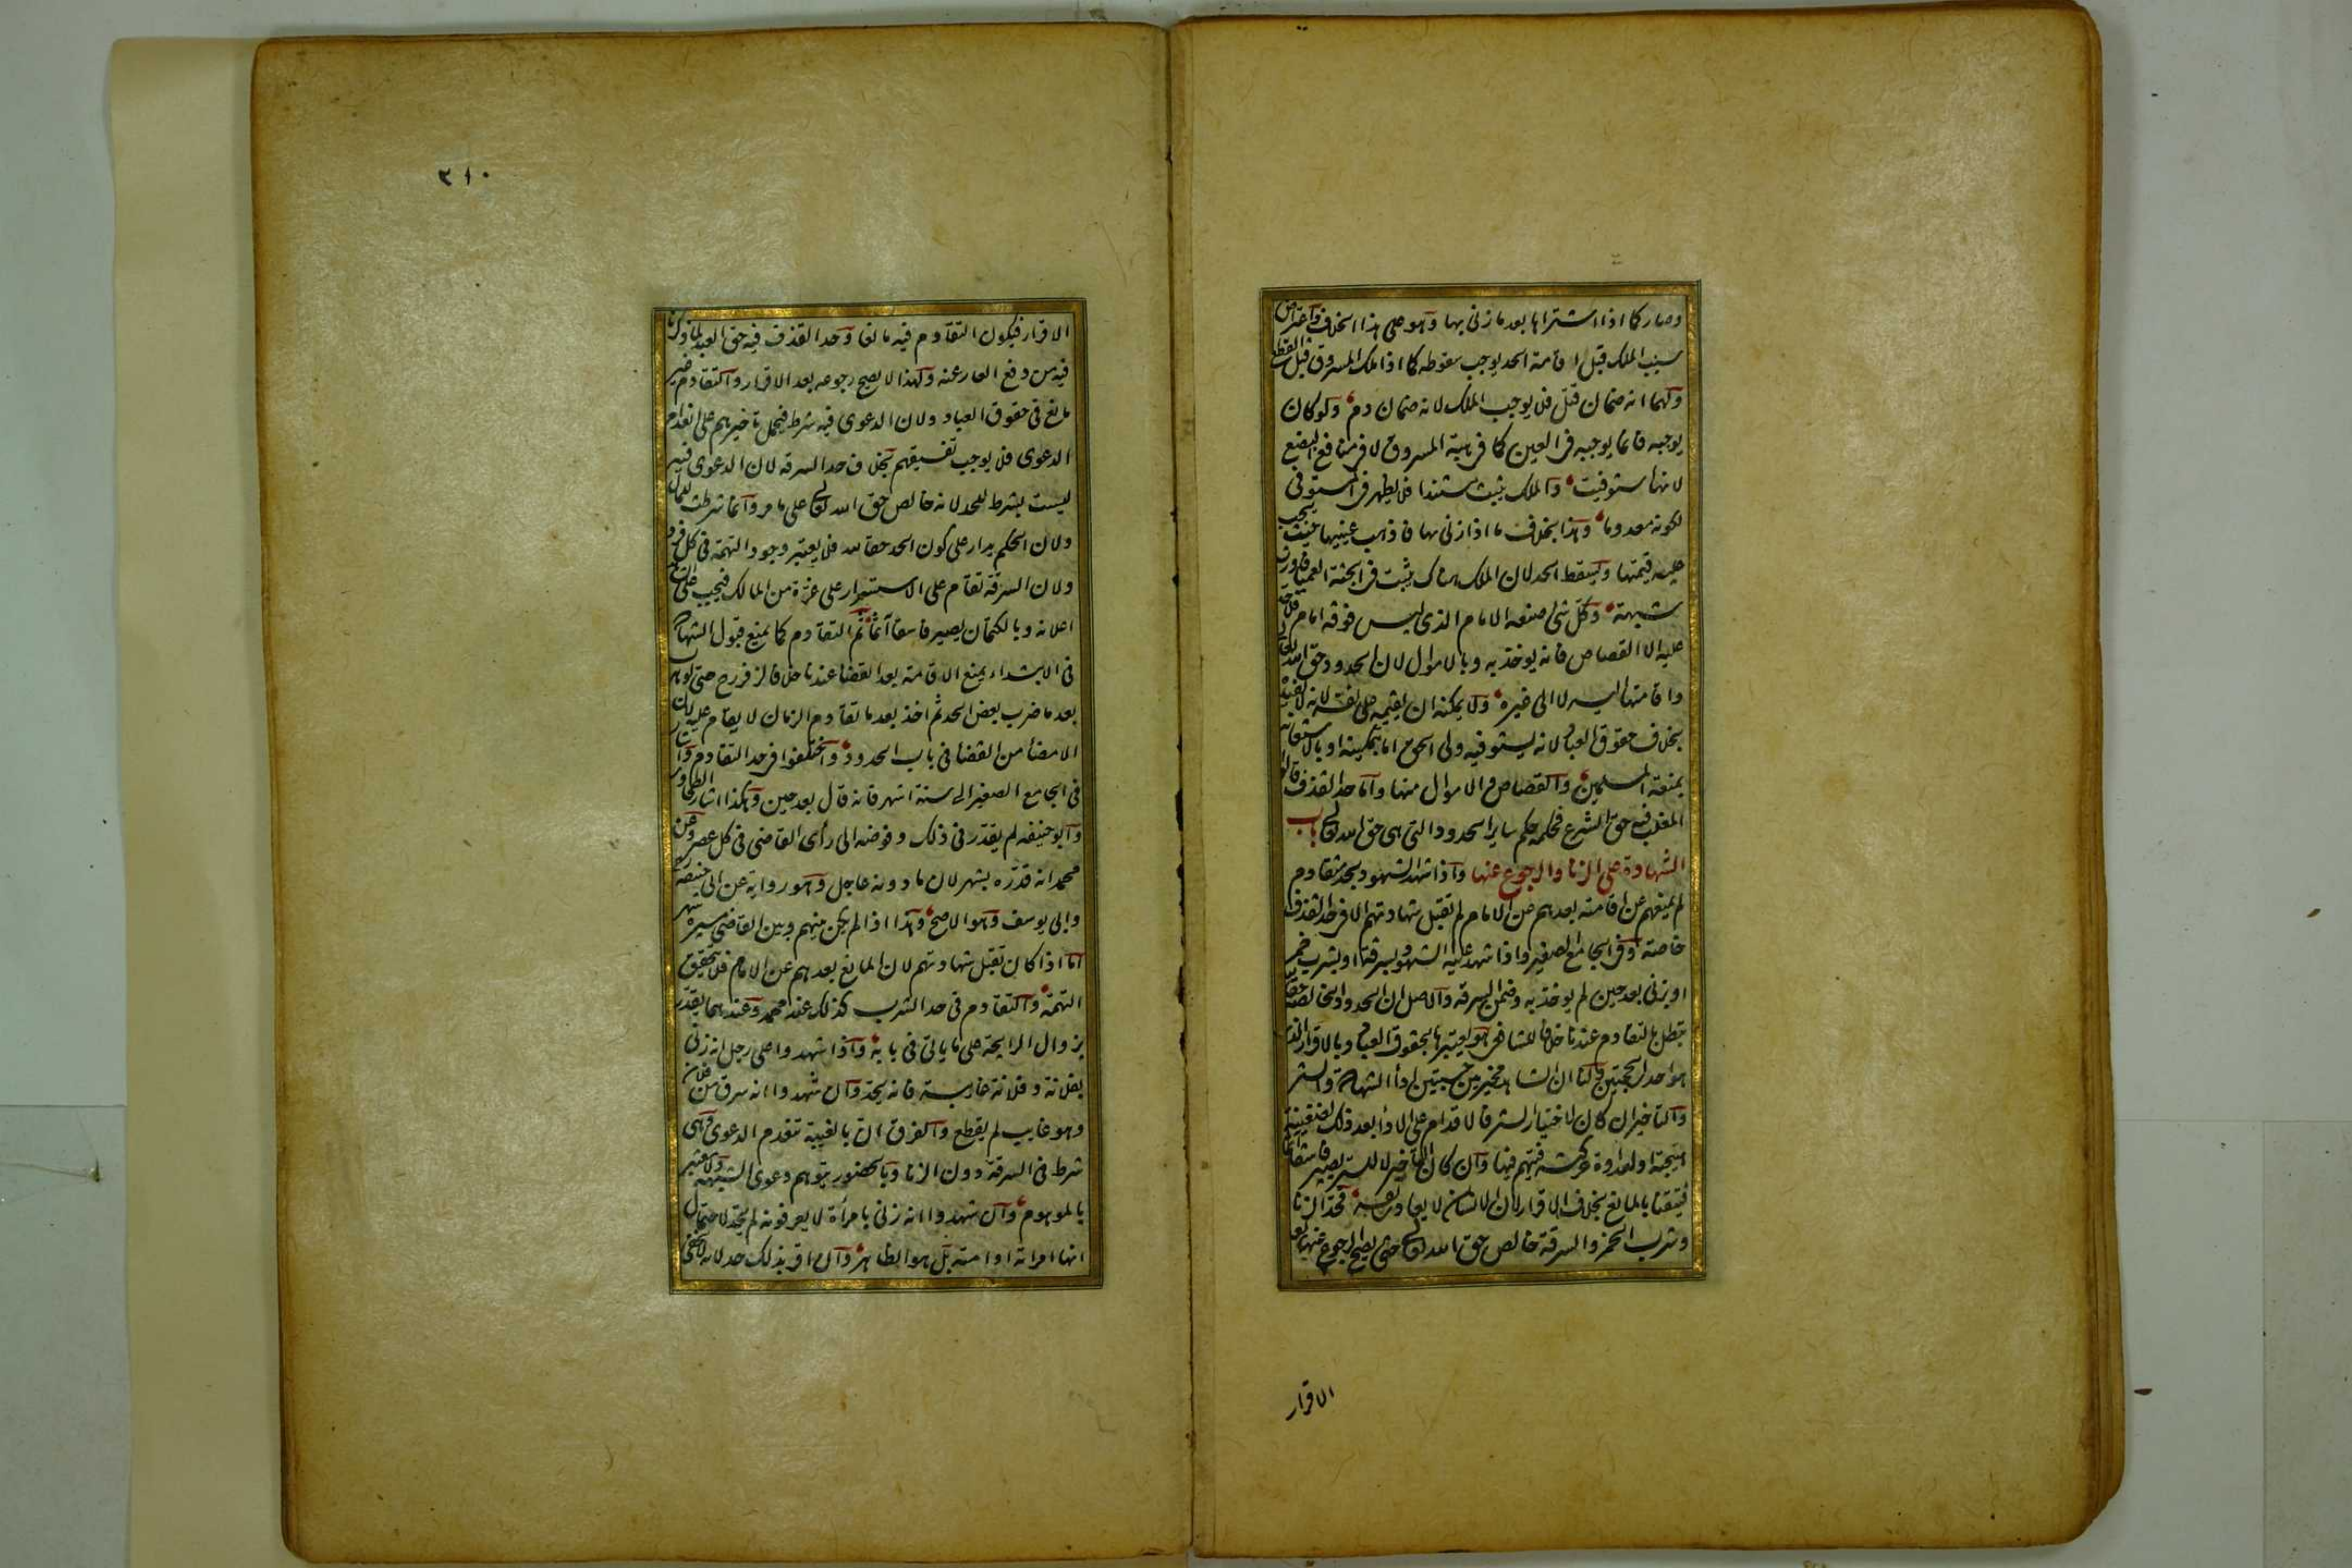 وصار كما اذا اشتراها بعد ما زنى بها وهو على هذا الخلاف واعتراض
سبب الملك قبل اقامة الحد يوجب سقوطه كما اذا ملك المسروق قبل القطع
ولهما انه ضمان قتل فلا يوجب الملك لانه ضمان دم ولو كان
يوجبه فانما يوجبه فى العين كما فى هبة المسروق لا فى منافع البضع
لانها استوفيت والملك يثبت مستندا فلا يظهر فى المستوفى
لكونه معدوما وهذا بخلاف ما اذا زنى بها فاذهب عينيها حيث يجب
عليه قيمتها ويسقط الحد لان الملك هناك يثبت فى الجثة العمياء فاورث
شبهة وكل شئ صنعه الامام الذى ليس فوقه امام فلا حد
عليه الا القصاص فانه يوخذ به وبالاموال لان الحدود حق الله تعالى
واقامتها اليه لا الى غيره ولا يمكنه ان يقيمه على نفسه لانه لا يفيد
بخلاف حقوق العباد لانه يستوفيه ولى الحق اما بتمكينه او بالاستعانة
بمنعة المسلمين والقصاص والاموال منها واما حد القذف قالوا
المغلب فيه حق الشرع فحكمه حكم ساير الحدود التى هى حق الله تعالى باب
الشهادة على الزنا والرجوع عنها واذا شهد الشهود بحد متقادم
لم يمنعهم عن اقامته بعدهم عن الامام لم تقبل شهادتهم الا فى حد القذف
خاصة وفى الجامع الصغير واذا شهد عليه الشهود بسرقة او بشرب خمر
او بزنى بعد حين لم يوخذ به وضمن السرقة والاصل ان الحدود الخالصة حقا لله
تبطل بالتقادم عندنا خلافا للشافعى هو يعتبرها بحقوق العباد وبالاقرار الذى
هو احد الحجتين ولنا ان الشاهد مخير بين حسبتين اداء الشهادة والستر
والتاخير ان كان لاختيار الستر فالاقدام على الاداء بعد ذلك لضغينة
هيجته او لعداوة حركته فيتهم فيها وان كان التاخير لا للستر يصير فاسقا آثما
فتيقنا بالمانع بخلاف الاقرار لان الانسان لا يعادى نفسه فحد الزنا
وشرب الخمر والسرقة خالص حق الله تعالى حتى يصح الرجوع عنها بعد
الاقرار
٣١٠
الاقرار فيكون التقادم فيه مانعا وحد القذف فيه حق العبد لما ذكرنا
فيه من دفع العار عنه ولهذا لا يصح رجوعه بعد الاقرار والتقادم غير
مانع فى حقوق العباد ولان الدعوى فيه شرط فيحمل تاخيرهم على انعدام
الدعوى فلا يوجب تفسيقهم بخلاف حد السرقة لان الدعوى فيه
ليست بشرط للحد لانه خالص حق الله تعالى على ما مر وانما شرطت للمال
ولان الحكم يدار على كون الحد حقا لله فلا يعتبر وجود التهمة فى كل فرد
ولان السرقة تقام على الاستسرار على غرة من المالك فيجب على الشاهد
اعلانه وبالكتمان يصير فاسقا آثما ثم التقادم كما يمنع قبول الشهادة
فى الابتداء يمنع الاقامة بعد القضا عندنا خلافا لزفر رح حتى لو هرب
بعد ما ضرب بعض الحد ثم اخذ بعد ما تقادم الزمان لا يقام عليه لان
الامضا من القضا فى باب الحدود واختلفوا فى حد التقادم واشار
فى الجامع الصغير الى ستة اشهر فانه قال بعد حين وهكذا اشار الطحاوى
وابو حنيفة لم يقدر فى ذلك وفوضه الى رأى القاضى فى كل عصر وعن
محمد انه قدره بشهر لان ما دونه عاجل وهو رواية عن ابى حنيفة
وابى يوسف وهو الاصح وهذا اذا لم يكن بينهم وبين القاضى مسيرة شهر
اما اذا كان تقبل شهادتهم لان المانع بعدهم عن الامام فلا تتحقق
التهمة والتقادم فى حد الشرب كذلك عند محمد وعندهما يقدر
بزوال الرايحة على ما ياتى فى بابه واذا شهدوا على رجل انه زنى
بفلانة وفلانة غايبة فانه يحد وان شهدوا انه سرق من فلان
وهو غايب لم يقطع والفرق ان بالغيبة تنعدم الدعوى وهى
شرط فى السرقة دون الزنا وبالحضور يتوهم دعوى الشبهة ولا معتبر
بالموهوم وان شهدوا انه زنى بامرأة لا يعرفونه لم يحد لاحتمال
انها امراته او امته بل هو الظاهر وان اقر بذلك حد لانه لا يخفى